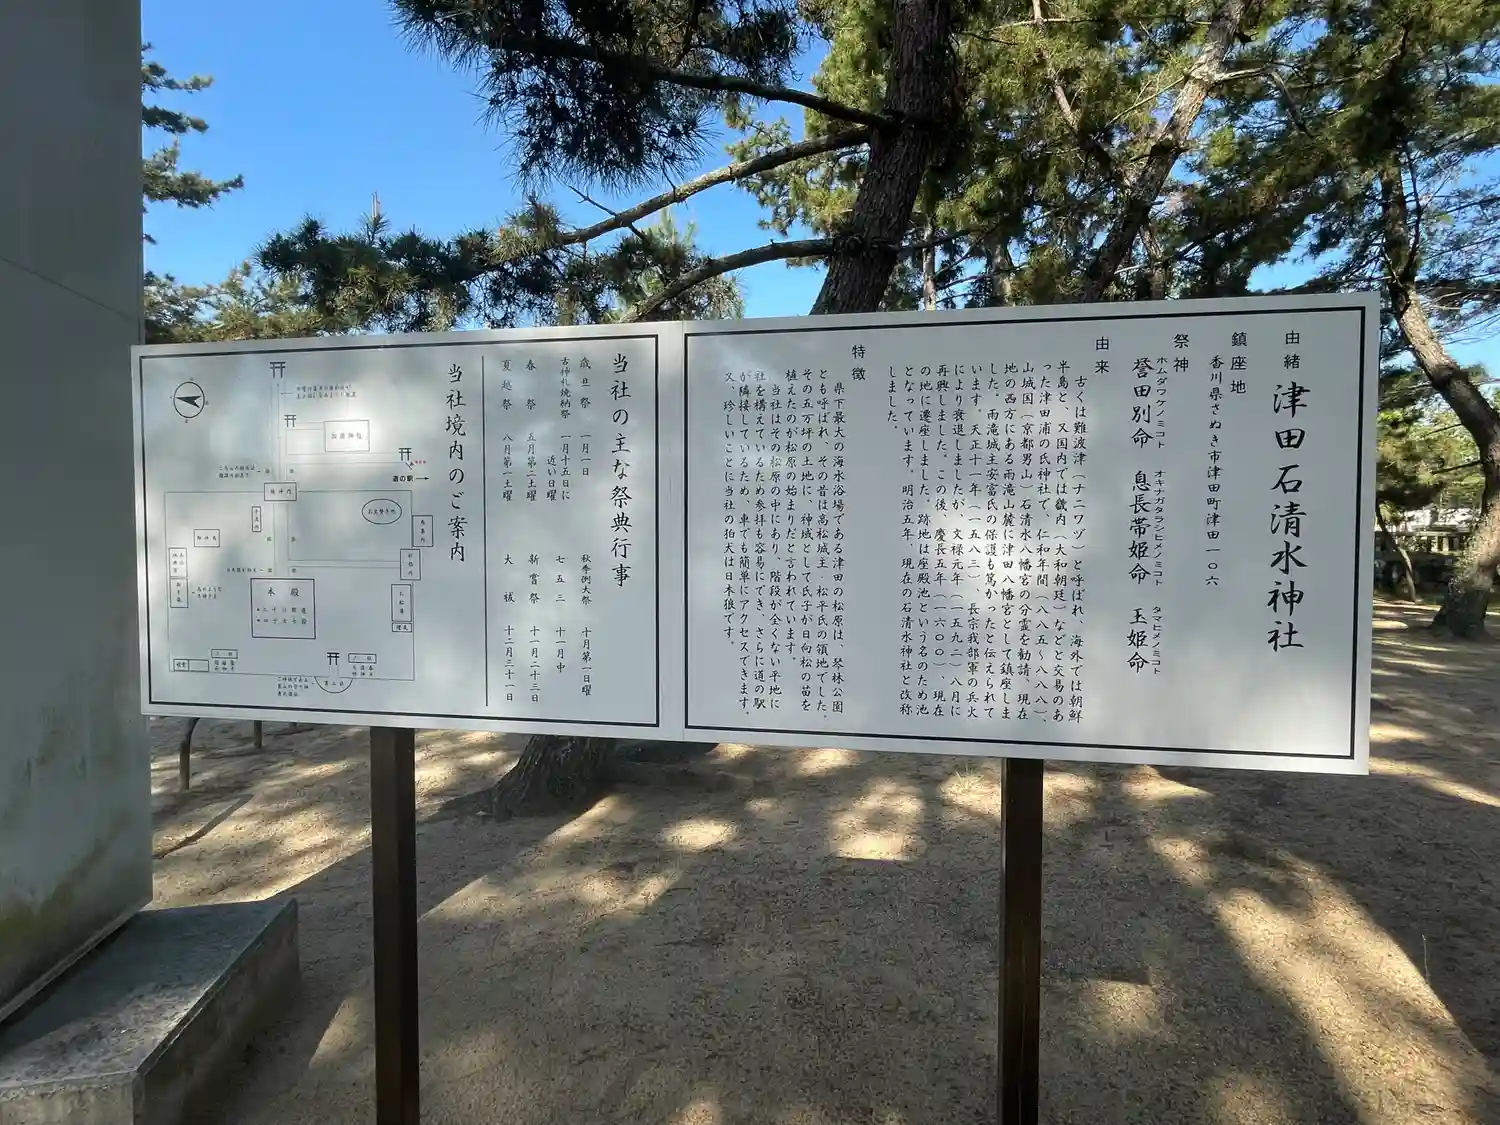 由緒
津田石清水神社
鎮座地
香川県さぬき市津田町津田一〇六
祭神
ホムダワケノミコト
誉田別命
オキナガタラシヒメノミコト
息長帯姫命
タマヒメノミコト
玉姫命
由来
古くは難波津(ナニワヅ)と呼ばれ、海外では朝鮮
半島と、又国内では畿内(大和朝廷)などと交易のあ
った津田浦の氏神社で、仁和年間(八八五~八八八)、
山城国(京都男山)石清水八幡宮の分霊を勧請、現在
地の西方にある雨滝山麓に津田八幡宮として鎮座しま
した。雨滝城主安富氏の保護も篤かったと伝えられて
います。天正十一年(一五八三)、長宗我部軍の兵火
により衰退しましたが、文禄元年(一五九二)八月に
再興しました。この後、慶長五年(一六〇〇)、現在
の地に遷座しました。跡地は座殿池という名のため池
となっています。明治五年、現在の石清水神社と改称
しました。
特徴
県下最大の海水浴場である津田の松原は、琴林公園
とも呼ばれ、その昔は高松城主・松平氏の領地でした。
その五万坪の土地に、神域として氏子が日向松の苗を
植えたのが松原の始まりだと言われています。
当社はその松原の中にあり、階段が全くない平地に
社を構えているため参拝も容易にでき、さらに道の駅
が隣接しているため、車でも簡単にアクセスできます。
又、珍しいことに当社の狛犬は日本狼です。
当社の主な祭典行事
歳旦祭 一月一日
古神札焼納祭 一月十五日に
近い日曜
春祭 五月第二土曜
夏越祭 八月第一土曜
秋季例大祭 十月第一日曜
七五三 十一月中
新嘗祭 十一月二十三日
大祓 十二月三十一日
当社境内のご案内
道の駅
随神門
本殿